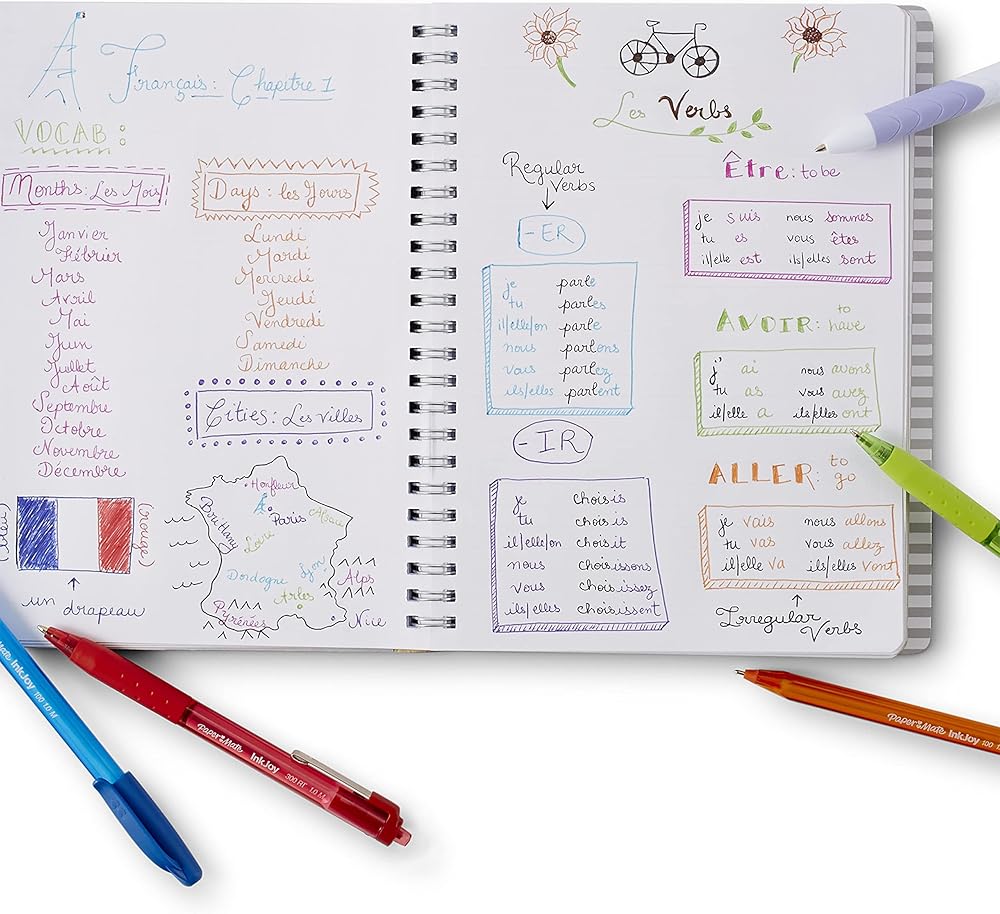 Français: Chapitre 1
VOCAB:
Months: Les Mois
Janvier
Février
Mars
Avril
Mai
Juin
Juillet
Août
Septembre
Octobre
Novembre
Décembre
Days: les Jours
Lundi
Mardi
Mercredi
Jeudi
Vendredi
Samedi
Dimanche
Cities: Les Villes
(rouge)
un drapeau
Honfleur
Paris
Alsace
Brittany
Loire
Dordogne
Lyon
Alps
Arles
Pyrénées
Nice
Les Verbs
Regular
Verbs
-ER
je parle
tu parles
il/elle/on parle
nous parlons
vous parlez
ils/elles parlent
-IR
je choisis
tu choisis
il/elle/on choisit
nous choisissons
vous choisissez
ils/elles choisissent
Être: to be
je suis nous sommes
tu es vous êtes
il/elle est ils/elles sont
AVOIR: to have
j' ai nous avons
tu as vous avez
il/elle a ils/elles ont
ALLER: to go
je vais nous allons
tu vas vous allez
il/elle va ils/elles vont
Irregular Verbs
Mate InkJoy 100 1.0 M
Paper Mate InkJoy 300 RT 1.0 M
Paper Mate InkJoy 100